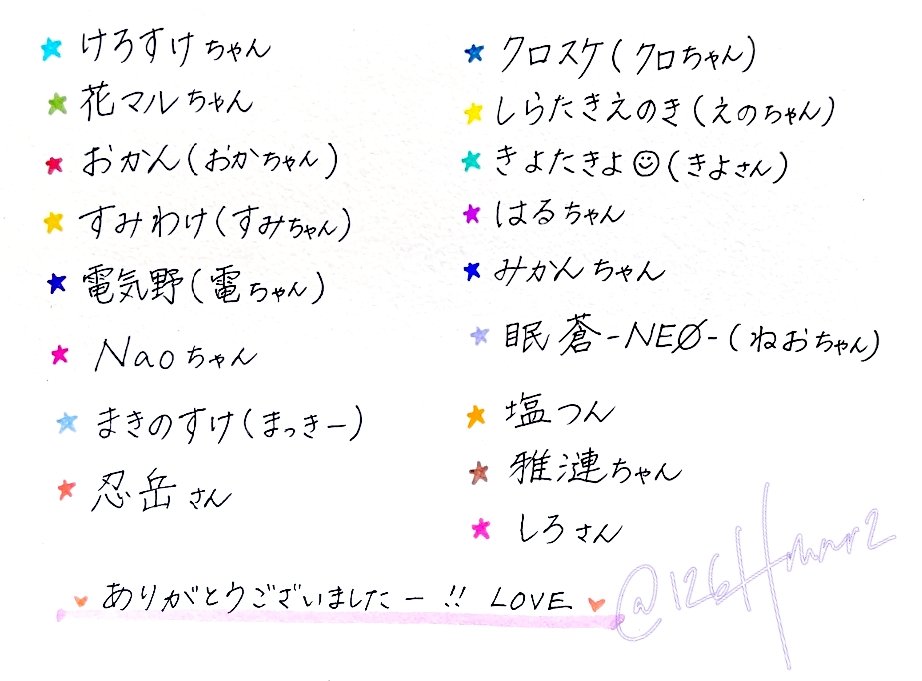 けろすけちゃん
花マルちゃん
おかん(おかちゃん)
すみわけ(すみちゃん)
電気野(電ちゃん)
Naoちゃん
まきのすけ(まっきー)
忍岳さん
クロスケ(クロちゃん)
しらたきえのき(えのちゃん)
きよたきよ☺(きよさん)
はるちゃん
みかんちゃん
眠蒼-NEØ-(ねおちゃん)
塩つん
雅漣ちゃん
しろさん
ありがとうございましたー!! LOVE